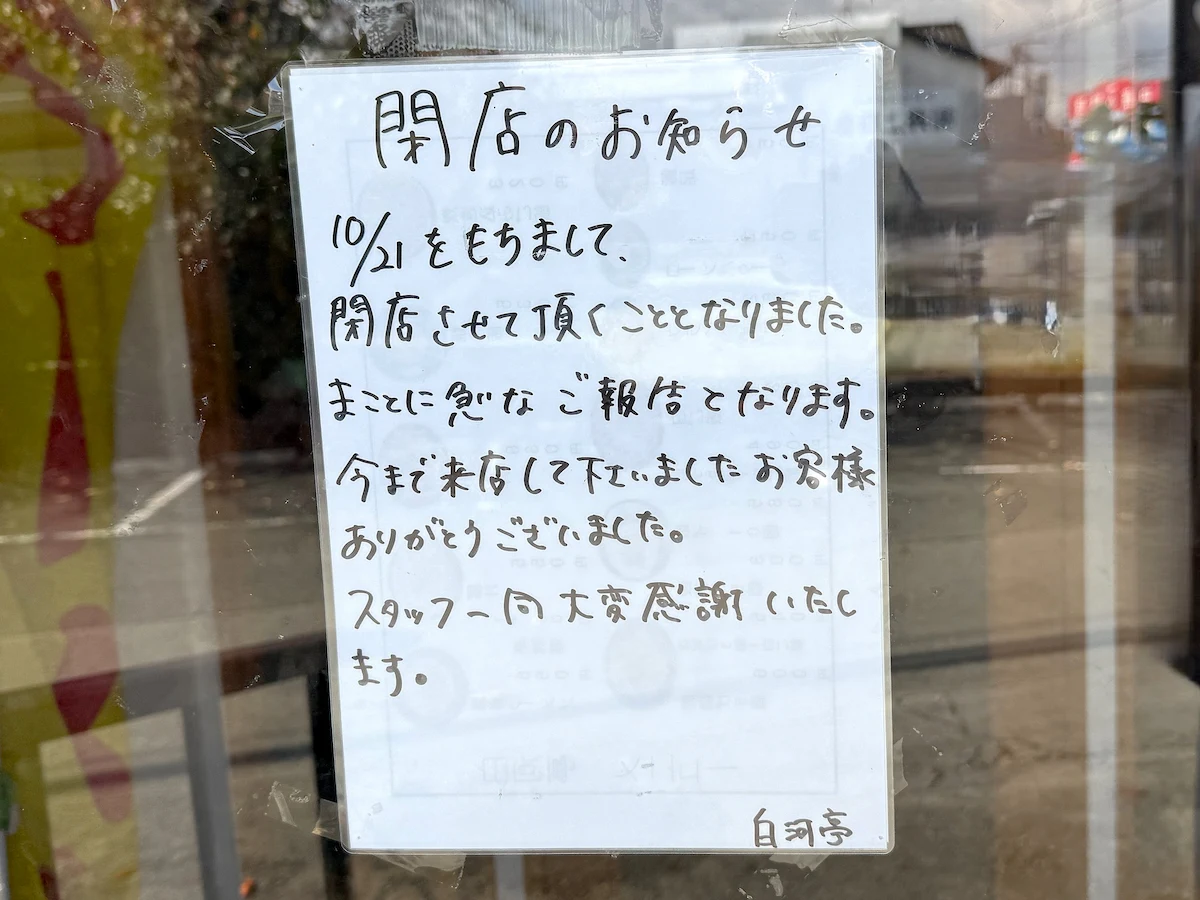 閉店のお知らせ
10/21をもちまして、
閉店させて頂くこととなりました。
まことに急な ご報告となります。
今まで来店して下さいましたお客様
ありがとうございました。
スタッフ一同大変感謝いたし
ます。
白河亭